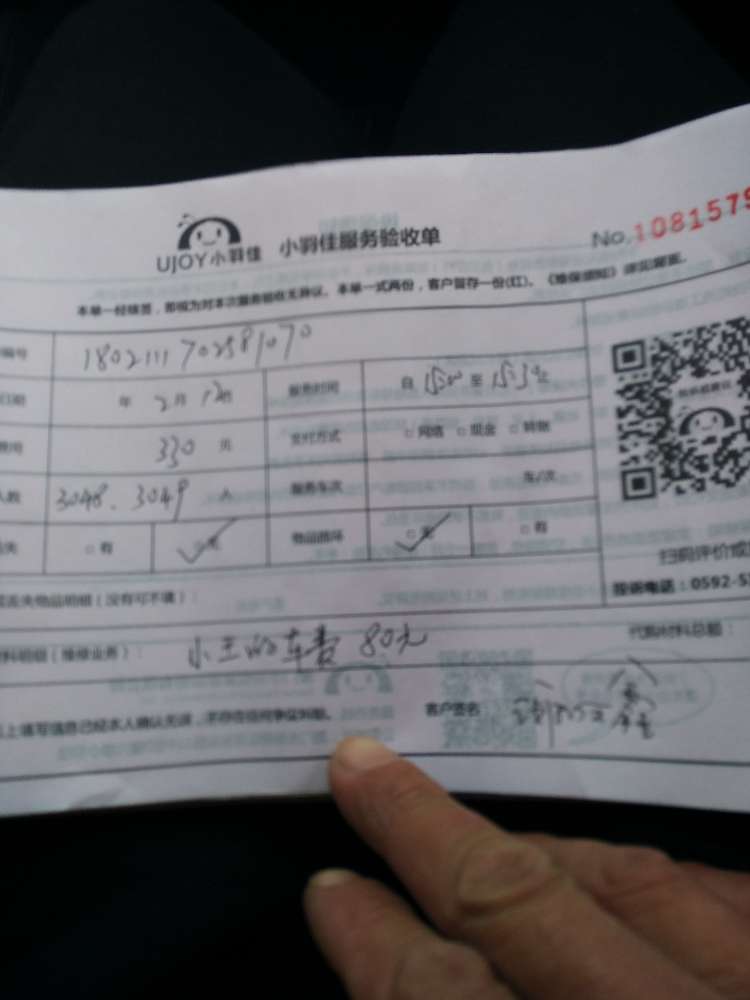 UJOY小羽佳 小羽佳服务验收单 No.1081579
本单一经签签，即视为对本次服务验收无异议。本单一式两份，客户留存一份(红)。
编号 180211170258 1070
日期 年 2月 12日 服务时间 自 15:00 至 15:30
费用 330 元 支付方式 □网络 □现金 □转账
人数 3048、3049 人 服务车次 车/次
□有 物品损坏 □无 □有
扫码评价或
丢失物品明细（没有可不填）：
投诉电话：0592-5
料明细（维修业务）： 小王的车费 80元 代购材料总额：
上填写信息已经本人确认无误，不存在任何争议纠纷。 客户签名